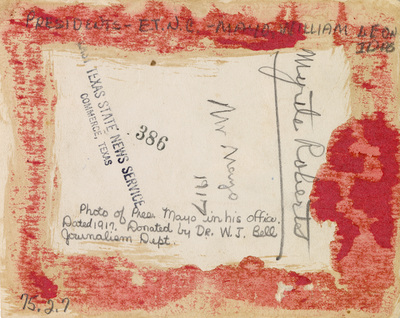 PRESIDENTS - E.T.N.C. - MAYO, WILLIAM LEON
TEXAS STATE NEWS SERVICE
COMMERCE, TEXAS
386
Mr Mayo
1917
Myrtle Roberts
Photo of Pres Mayo in his office.
Dated 1917. Donated by Dr. W. J. Bell
Journalism Dept.
75.2.7